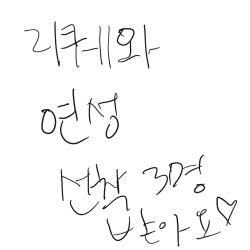 리퀘와
연성
선착 3명
받아요♡